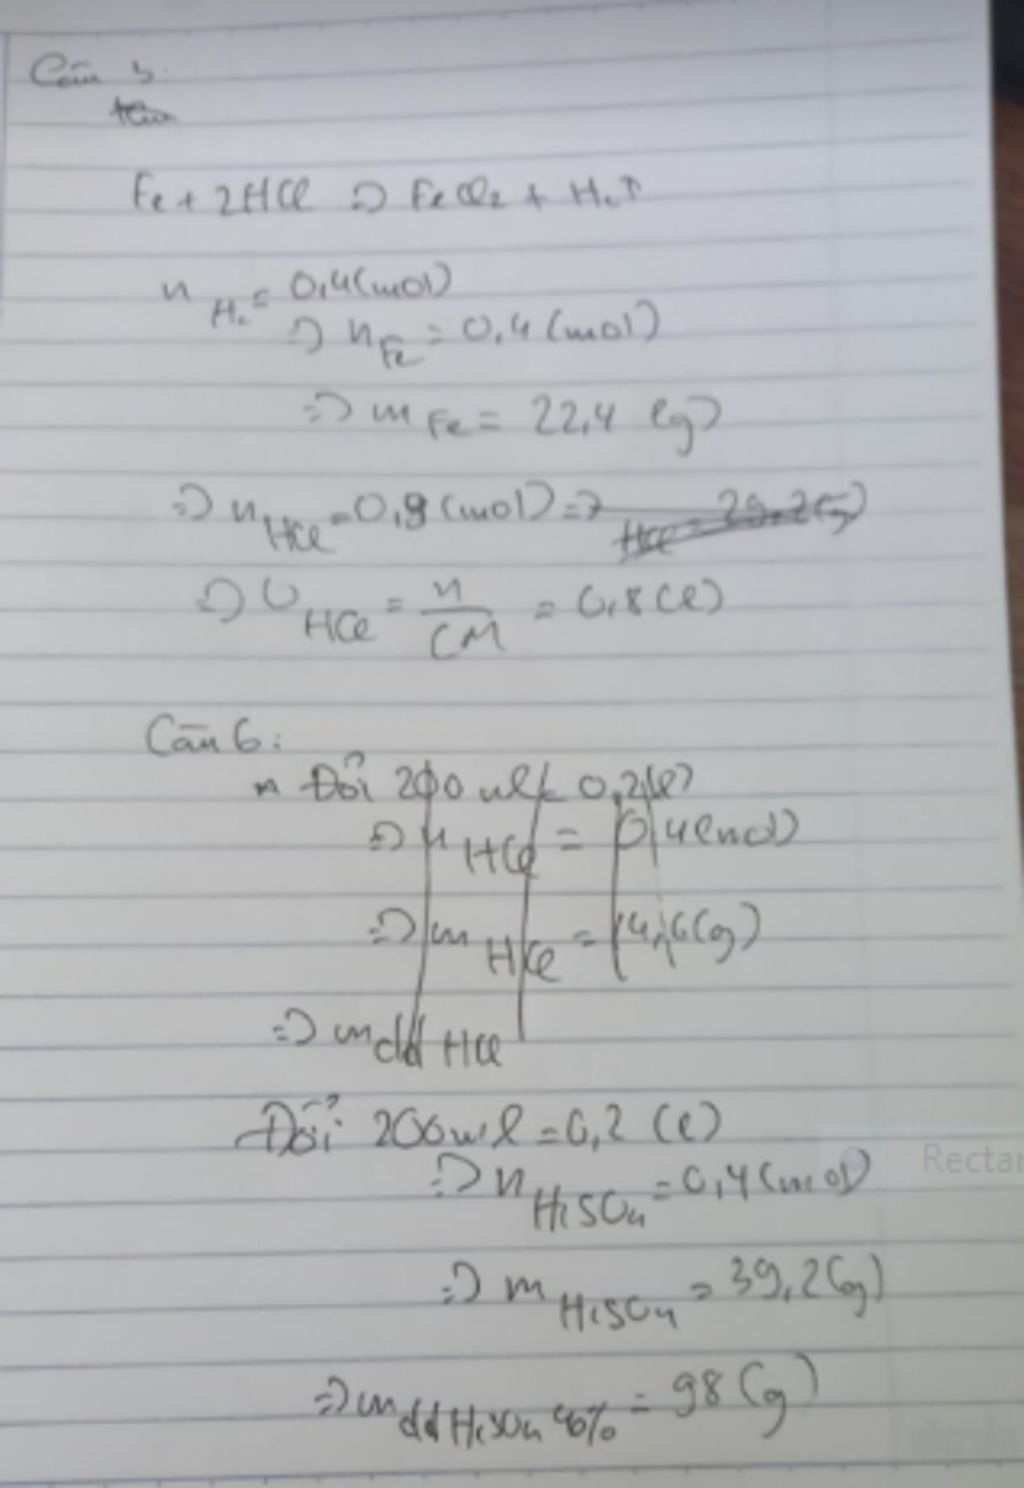 Câu 5:
Fe + 2HCl => FeCl2 + H2↑
n H2 = 0,4 (mol)
=> n Fe = 0,4 (mol)
=> m Fe = 22,4 (g)
=> n HCl = 0,8 (mol) => HCl = 29,2 (g)
=> V HCl = n/CM = 0,8 (l)
Câu 6:
Đổi 200 ml = 0,2 (l)
=> n HCl = 0,4 (mol)
=> m HCl = 14,6 (g)
=> m dd HCl
Đổi 200 ml = 0,2 (l)
=> n H2SO4 = 0,4 (mol)
=> m H2SO4 = 39,2 (g)
=> m dd H2SO4 40% = 98 (g)